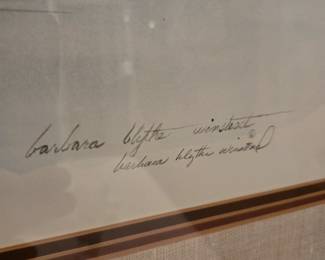 barbara blythe winstead
barbara blythe winstead